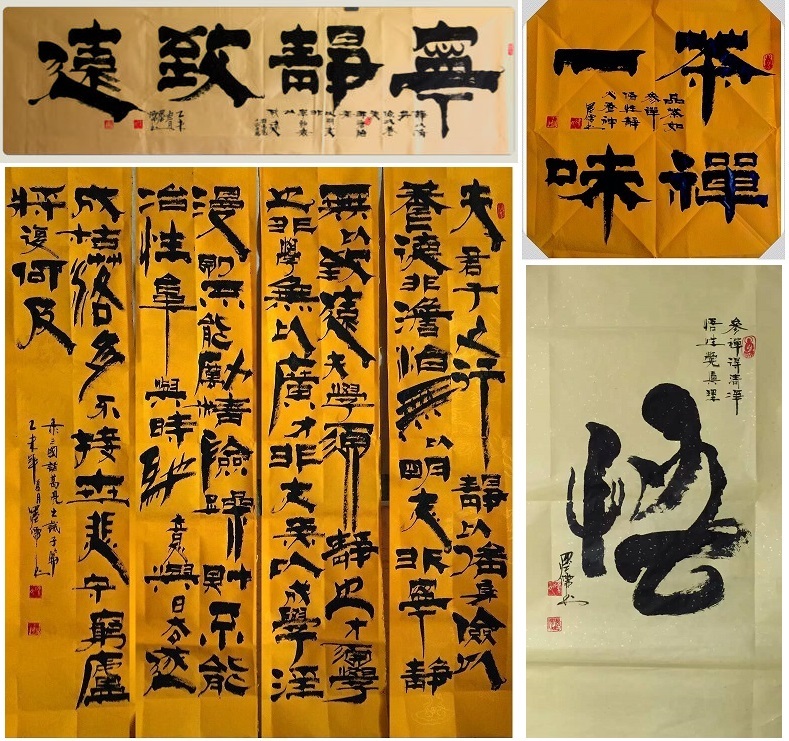 寧靜致遠
乙未夏月
茶禪
一味
品茶如
參禪
悟性靜
夫君子之行靜以脩身儉以
養德非澹泊無以明志非寧靜
無以致遠夫學須靜也才須學
也非學無以廣才非志無以成學淫
漫則不能勵精險躁則不能
冶性年與時馳意與日去遂
成枯落多不接世悲守窮廬
將復何及
錄三國諸葛亮之誡子篇
乙未年夏月羅偉書
參禪得清淨
悟性覺真理
悟
羅偉書